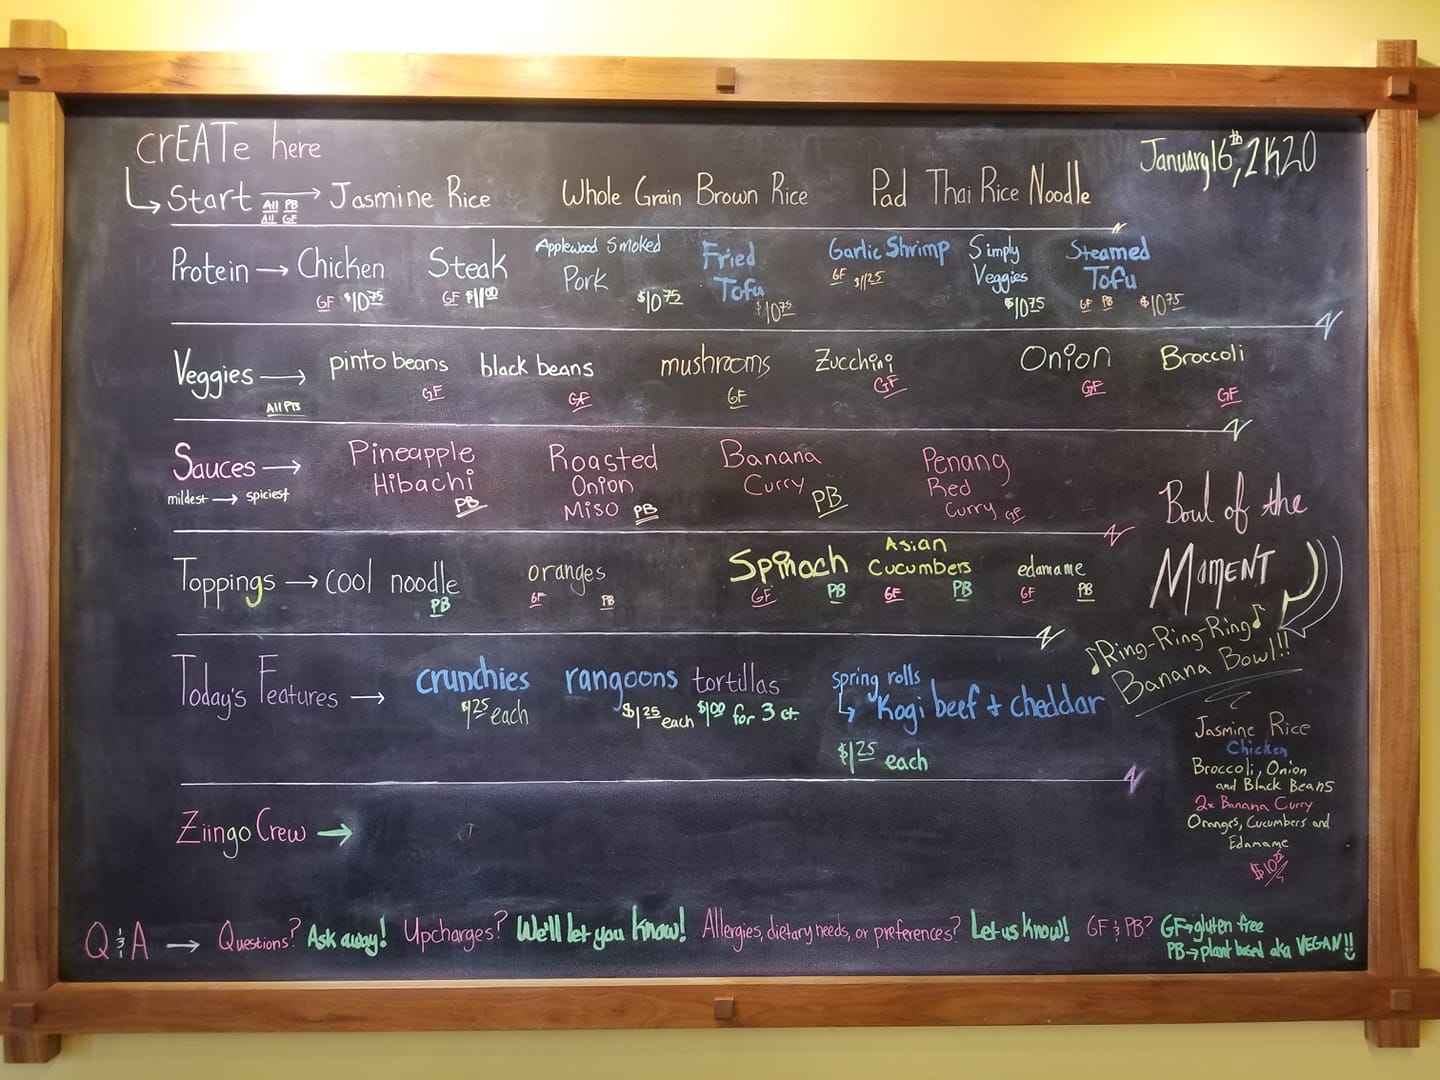 crEATe here
January 16th, 2K20
Start → Jasmine Rice Whole Grain Brown Rice Pad Thai Rice Noodle
All PB
All GF
Protein → Chicken Steak Applewood Smoked Pork Fried Tofu Garlic Shrimp Simply Veggies Steamed Tofu
GF $10.75 GF $11.00 $10.75 $10.75 GF $11.25 $10.75 GF PB $10.75
Veggies → pinto beans black beans mushrooms Zucchini Onion Broccoli
All PB GF GF GF GF GF GF
Sauces → Pineapple Hibachi PB Roasted Onion Miso PB Banana Curry PB Penang Red Curry GF
mildest → spiciest
Toppings → cool noodle oranges Spinach Asian Cucumbers edamame
PB GF PB GF PB GF PB GF PB
Today's Features → crunchies rangoons tortillas spring rolls
$1.25 each $1.25 each $1.00 for 3 ct. Kogi beef + cheddar
$1.25 each
Ziingo Crew →
Bowl of the
MOMENT
♪Ring-Ring-Ring♪
Banana Bowl!!
Jasmine Rice
Chicken
Broccoli, Onion
and Black Beans
2x Banana Curry
Oranges, Cucumbers and
Edamame
$10.75
Q & A → Questions? Ask away! Upcharges? We'll let you know! Allergies, dietary needs, or preferences? Let us know! GF & PB? GF→gluten free
PB→plant based aka VEGAN!!